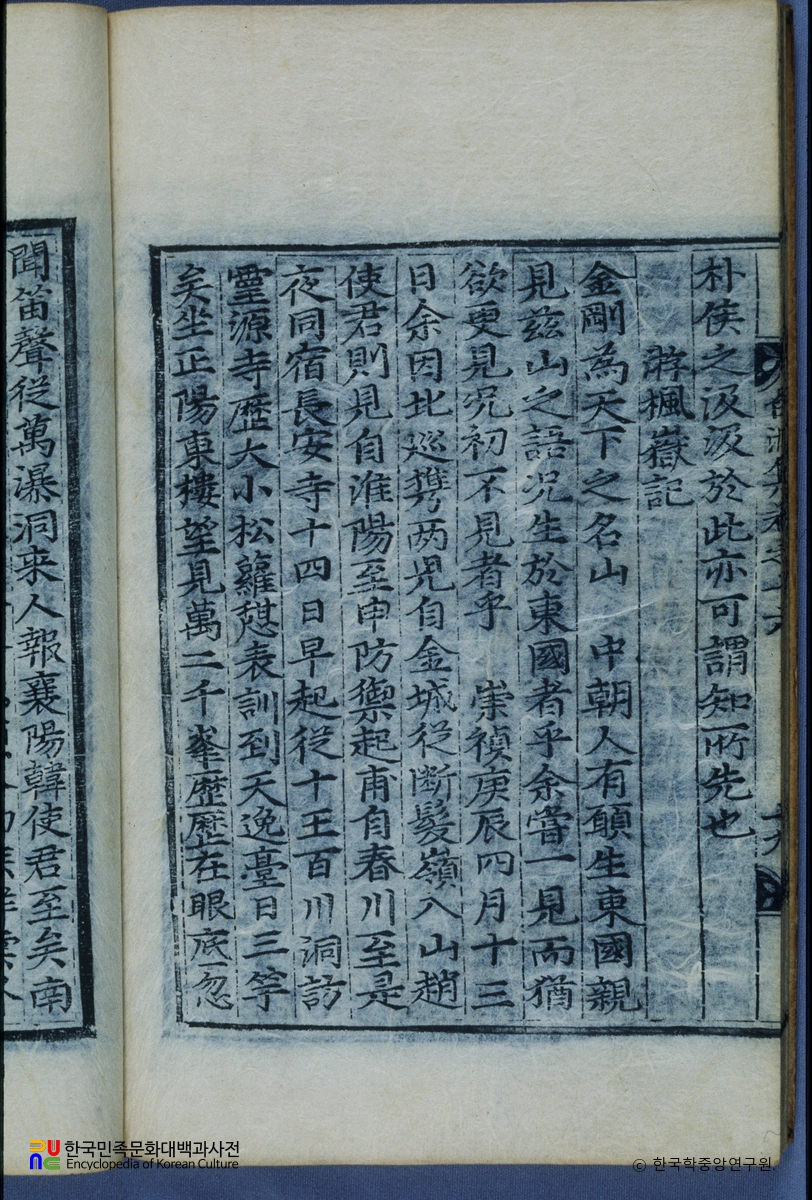 朴侯之汲汲於此亦可謂知所先也
遊楓嶽記
金剛為天下之名山 中朝人有願生東國親
見玆山之語况生於東國者乎余嘗一見而猶
欲更見况初不見者乎 崇禎庚辰四月十三
日余因北巡携两児自金城從断髮嶺入山趙
使君則見自淮陽至申防禦起甫自春川至是
夜同宿長安寺十四日早起從十王百川洞訪
靈源寺歷大小松蘿憇表訓到天逸臺日三竿
矣坐正陽東樓望見萬二千峯歷歷在眼底忽
聞笛聲從萬瀑洞来人報襄陽韓使君至矣南
한국민족문화대백과사전
Encyclopedia of Korean Culture
© 한국학중앙연구원